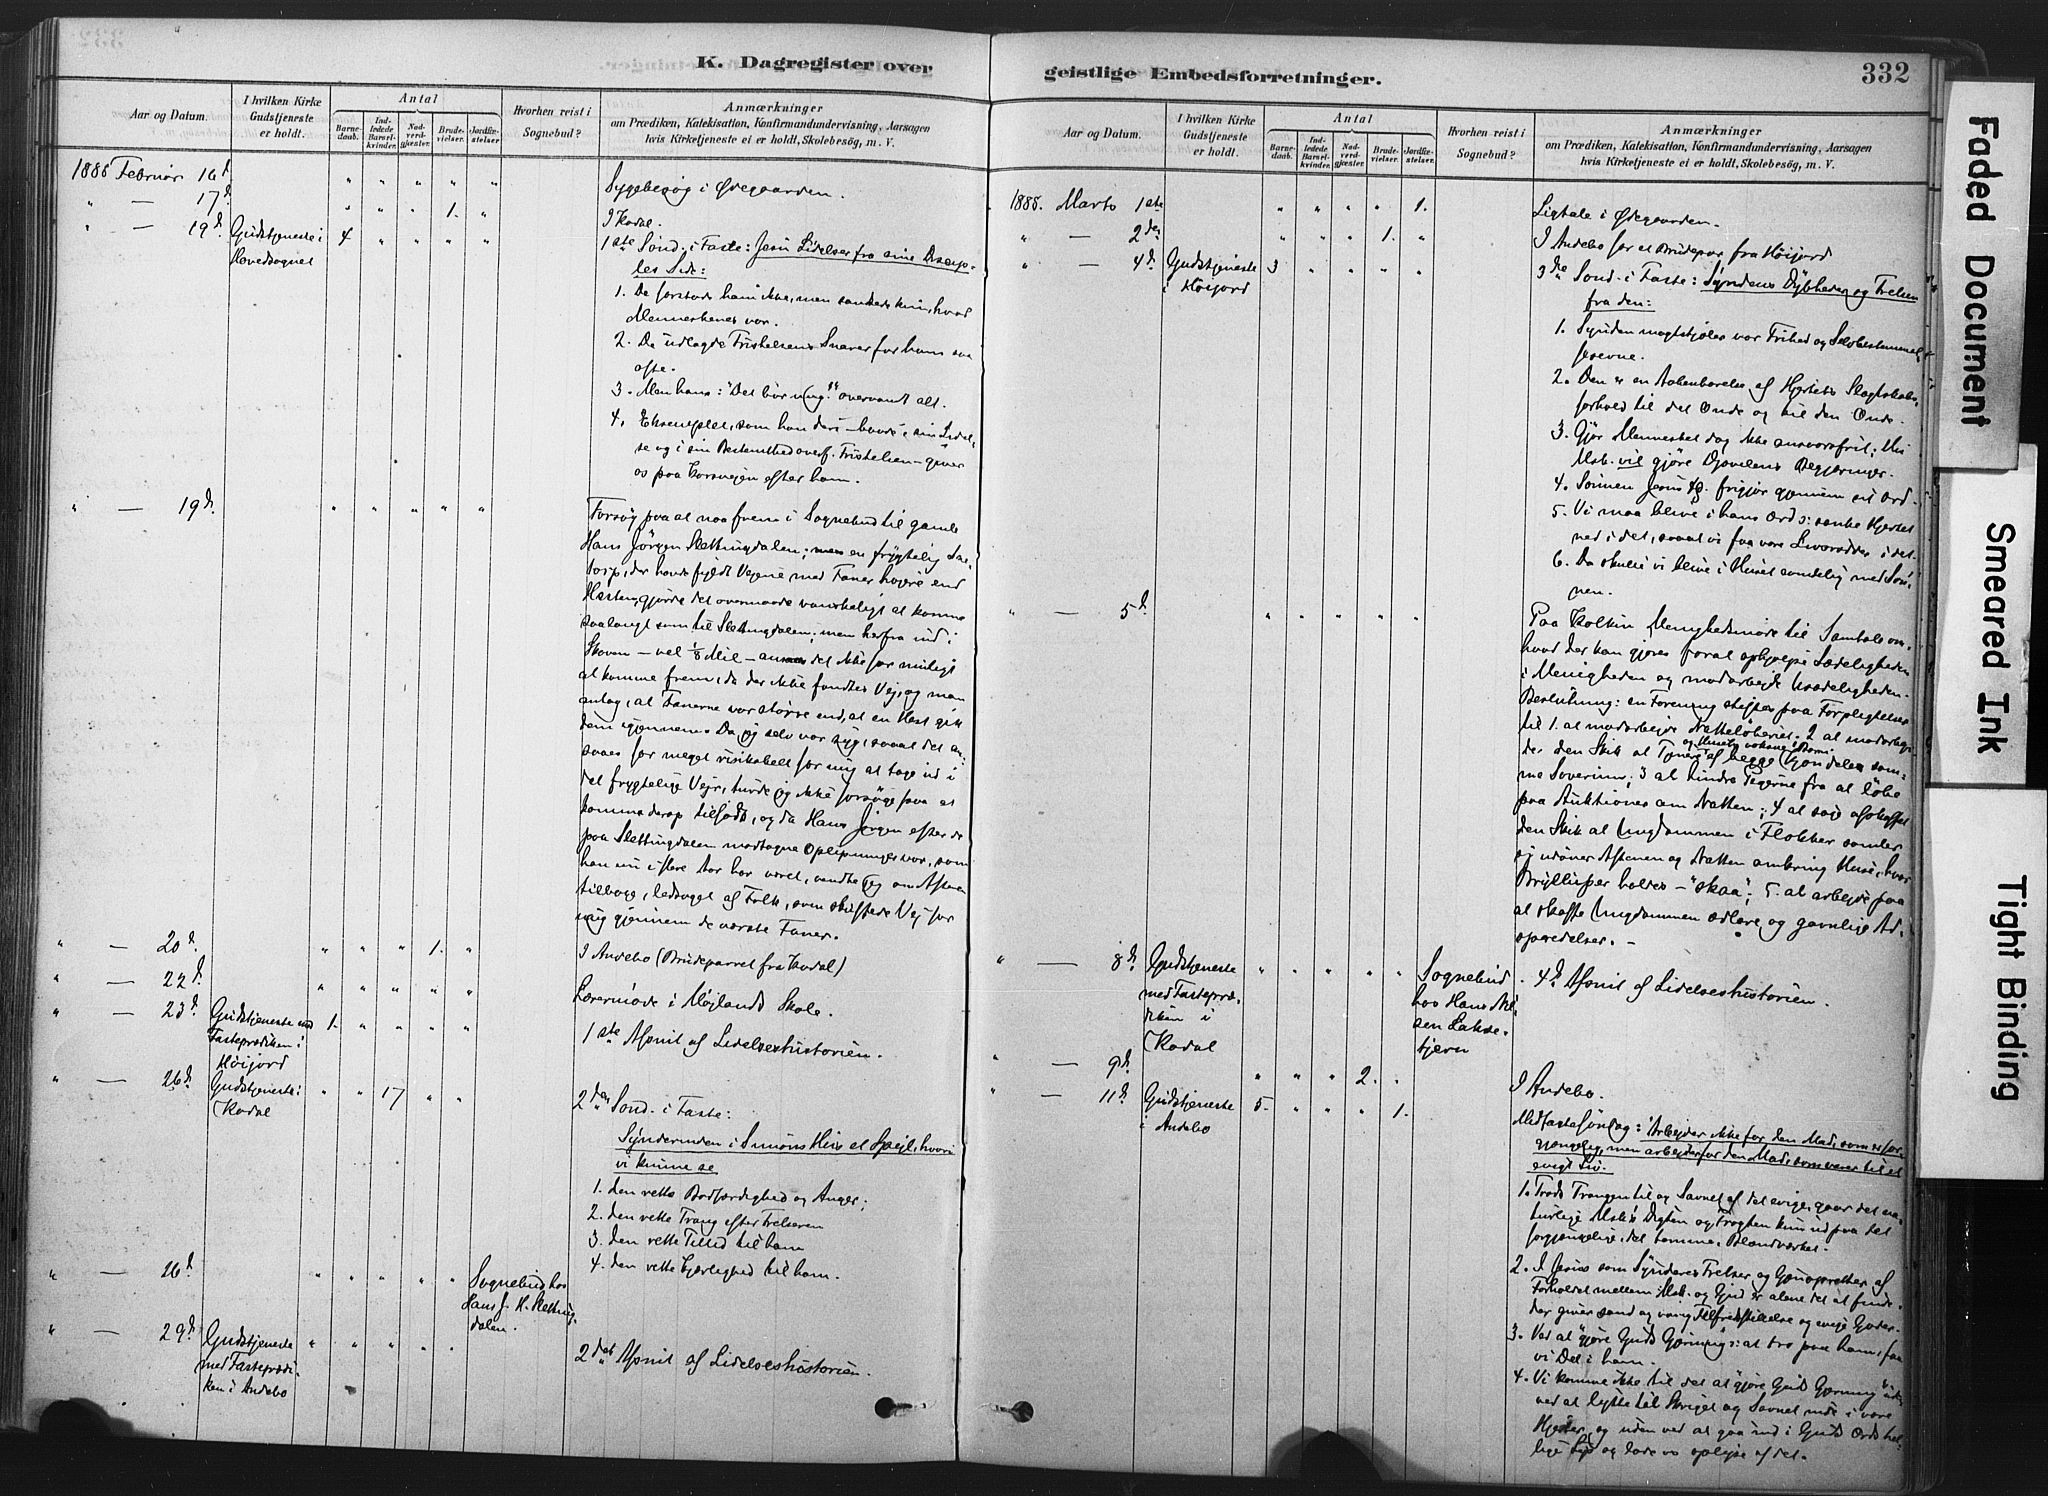 K. Dagregister over
Aar og Datum.
I hvilken Kirke Gudstjeneste er holdt.
Antal
Barnedaab.
Indledede Barselkvinder.
Nadverdgjæster.
Brudevielser.
Jordfæstelser
Hvorhen reist i Sognebud?
Anmærkninger
om Prædiken, Katekisation, Konfirmandundervisning, Aarsagen
hvis Kirketjeneste ei er holdt, Skolebesög, m. V.
1888 Februar 16d " " " " " Sygebesøg i Ødegaarden.
" — 17d " " " 1. " I Kodal.
" — 19d Gudstjeneste i 4 " " " " 1ste Sönd. i Faste: Jesu Lidelser fra sine Discip-
Hovedsognet
les Side:
1. De forstode ham ikke, men sandsede kun, hvad
Menneskenes var.
2. De udlagde Fristelsens Snarer for ham saa
ofte.
3. Men hans: "Det bör mig" overvandt alt.
4. Eksemplet, som han deri havde i sin Lidel-
se og i sin Bestemthed overf. Fristelsen – giver
os paa Korsvejen efter ham.
" — 19d " " " " " Forsøg paa at naa frem i Sognebud til gamle
Hans Jörgen Slettingdalen; men en frygtelig
der havde fyldt Vejene med Faner højere end
Hesten, gjorde det overmaade vanskeligt at komme
saalangt som til Slettingdalen; men herfra ind i
Skoven – vel 1/8 Mil – ansaaes det ikke for muligt
at komme frem, da der ikke fandtes Vej, og man
antog, at Fanerne var större end, at en Hest gik
dem igjennem. Da jeg selv var syg, saaat det an-
saaes for meget risikabelt for mig at tage ud i
det frygtelige Vejr, turde jeg ikke forsöge paa at
komme derop tilfods, og da Hans Jörgen efter de
paa Slettingdalen modtagne Oplysninger var, som
han nu i flere Aar har været, vendte jeg om Aftenen
tilbage, ledsaget af Folk, som skuffede Vej for
mig gjennem de værste Faner.
" — 20d. " " " 1. " I Andebo (Brudeparret fra Kodal)
" — 22d. " " " " " Lærermöde i Møjlands Skole.
" — 23d Gudstjeneste med 1. " " " " 1ste Afsnit af Lidelseshistorien.
Fasteprædiken i
Höijord
" — 26d. Gudstjeneste i " " 17 " " 2den Sönd. i Faste:
Kodal
Synderinden i Simons Hus et Spejl, hvori
vi kunne se
1. den rette Bodfærdighed og Anger;
2. den rette Trang efter Frelseren
3. den rette Tillid til ham
4. den rette Kjærlighed til ham.
" — 26d " " " " " Sognebud hos
Hans J. H. Sletting-
dalen.
" — 29d Gudstjeneste " " " " " 2det Afsnit af Lidelseshistorien.
med Fasteprædi-
ken i Andebo
geistlige Embedsforretninger.
332
Aar og Datum.
I hvilken Kirke Gudstjeneste er holdt.
Antal
Barnedaab.
Indledede Barselkvinder.
Nadverdgjæster.
Brudevielser.
Jordfæstelser.
Hvorhen reist i Sognebud?
Anmærkninger
om Prædiken, Katekisation, Konfirmandundervisning, Aarsagen
hvis Kirketjeneste ei er holdt, Skolebesög, m. V.
1888. Marts 1ste " " " " 1. Ligtale i Ødegaarden.
" — 2den " " " 1. " I Andebo for et Brudepar fra Höijord
" — 4d. Gudstjeneste 3 " " " " 3die Sönd. i Faste: Syndens Dybheder og Frelsen
i Höijord
fra den:
1. Synden magtstjæler vor Frihed og Selvbestemmel-
sesevne.
2. Den er en Aabenbarelse af Hjertets Slægtskabs-
forhold til det Onde og til den Onde.
3. Gjör Mennesket dog ikke ansvarsfrit; thi
Msk. vil gjöre Djævelens Begjæringer.
4. Sönnen Jesus frigjör gjennem sit Ord.
5. Vi maa blive i hans Ord ɔ: sænke Hjertet
ned i det, saaat vi faa vore Livsrödder i det.
6. Da skulle vi blive i Huset samdelig med Sön-
nen.
" — 5d. " " " " " Paa Kolkin Menighedsmöde til Samtale om
hvad der kan gjöres forat ophjælpe Sædeligheden
i Menigheden og modarbejde Usædeligheden.
Beslutning: en Forening stiftes paa Forpligtelse
til 1. at modarbejde Natteløberiet; 2 at modarbej-
de den Skik at Tjenere og Husets voksne Børn af begge Kjön deles sam-
me Soverum; 3 at hindre Pigerne fra at löbe
paa Auktioner om Natten; 4 at söge afskaffet
den Skik at Ungdommen i Flokker samler
sig udover Aftenen og Natten omkring Huse, hvor
Bryllupper holdes – "skaa"; 5. at arbejde paa
at skaffe Ungdommen ædlere og gavnlige Ad-
spredelser. –
" — 8d. Gudstjeneste " " " " " Sognebud . 4d Afsnit af Lidelseshistorien.
med Fastepræ-
diken i
Kodal
hos Hans Nil-
sen Lakse-
tjern
" — 9d. " " " 2. " I Andebo.
" — 11d Gudstjeneste 5. " " " 1. Midfastesöndag: Arbejder ikke for den Mad, som er for-
i Andebo
gængelig, men arbejder for den Mad, som varer til et
evigt Liv.
1. Trods Trangen til og Savnet af det evige, gaar det na-
turlige Msk's Digten og Tragten kun ud paa det
forgjængelige, det tomme Blændværket.
2. I Jesus som Synderes Frelser og Genopretter af
Forholdet mellem Msk. og Gud er alene det at finde,
der giver sand og varig Tilfredsstillelse og evige Goder.
3. Ved at "gjöre Guds Gjerning" ɔ: at tro paa ham, faa
vi Del i ham.
4. Vi komme ikke til det at "gjöre Guds Gjerning" uden
ved at lytte til Skriget og Savnet inde i vore
Hjerter, og uden ved at gaa ind i Guds Ords hel-
lige Lys og lade os oplyse af det.
Faded Document
Smeared Ink
Tight Binding